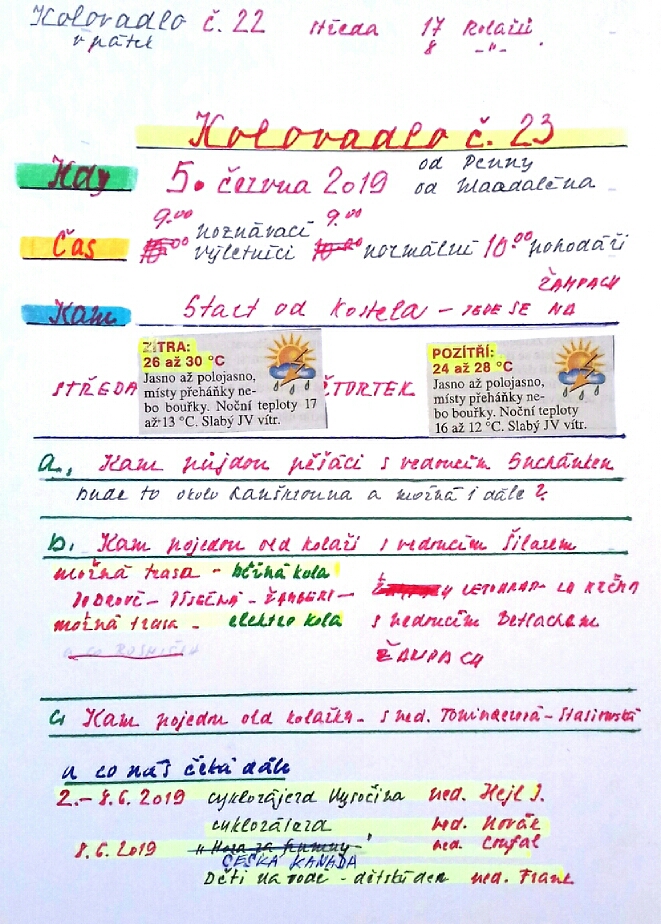 Kolovadlo č. 22 středa 17 kolařů
v pátek 8 -"- .
Kolovadlo č. 23
Kdy 5. června 2019 od Penny
od Magdaléna
9.00 9.00
Čas poznávací výletníci normální 10.00 pohodáři
ŽAMPACH
Kam Start od kostela – JEDE SE NA
ZÍTRA:
26 až 30 °C
Jasno až polojasno,
místy přeháňky ne-
bo bouřky. Noční teploty 17
až 13 °C. Slabý JV vítr.
POZÍTŘÍ:
24 až 28 °C
Jasno až polojasno,
místy přeháňky ne-
bo bouřky. Noční teploty
16 až 12 °C. Slabý JV vítr.
STŘEDA ČTVRTEK
a, Kam půjdou pěšáci s vedoucím Suchánkem
bude to okolo Lanškrouna a možná i dále ?
b, Kam pojedou old kolaři s vedoucím Šilarem
možná trasa - běžná kola
PÍSEČNÁ - ŽAMBERK - LETOHRAD
možná trasa - elektro kola s vedoucím Betlachem
ŽAMPACH
c, Kam pojedou old kolařky - s ved.
a co nás čeká dále
2.- 8.6. 2019 cyklozájezd Vysočina ved. Hejl J.
cyklozájezd ved. Novák
8.6. 2019 "Hora za humny" ved. Coufal
ČESKÁ KANADA
Děti na vodě - dětský den ved. Frank